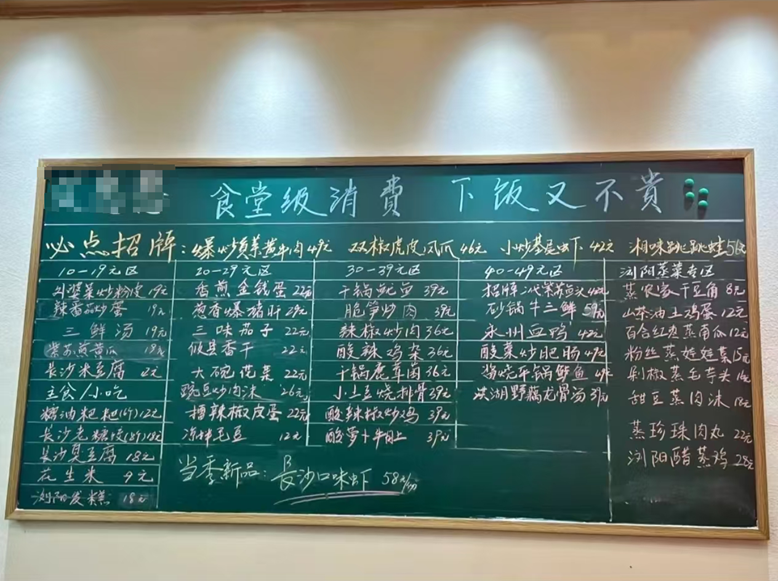 食堂级消费 下饭又不贵
必点招牌: 爆炒黄牛肉49元 双椒虎皮凤爪46元 小炒基尾虾42元 湘味跳跳蛙5元
10-19元区 20-29元区 30-39元区 40-49元区 浏阳蒸菜专区
外婆菜炒粉皮19元 香煎金钱蛋22元 干锅鱿鱼39元 招牌 蒸农家干豆角8元
辣香蛋19元 葱香爆猪肝29元 脆笋炒肉39元 砂锅牛三鲜59元 山茶油土鸡蛋12元
三鲜汤19元 三味茄子22元 辣椒炒肉36元 永州血鸭42元 百合红枣蒸南瓜12元
紫苏煎黄瓜19元 攸县香干22元 酸辣鸡杂36元 酸菜炒肥肠49元 粉丝蒸娃娃菜15元
长沙米豆腐2元 大碗花菜22元 干锅鹿茸菌36元 酱烧干锅鲫鱼49元 剁椒蒸毛芋头元
主食/小吃 豌豆炒肉沫26元 小土豆烧排骨39元 洪湖野藕龙骨汤39元 甜豆蒸肉沫18元
糖油粑粑(6个)12元 擂辣椒皮蛋22元 酸辣椒炒鸡39元
长沙老糖饺(6个)18元 凉拌毛豆12元 酸萝卜牛肚39元 蒸珍珠肉丸22元
长沙臭豆腐18元 浏阳醋蒸鸡28元
花生米9元 当季新品: 长沙口味虾58元/份
浏阳发糕18元